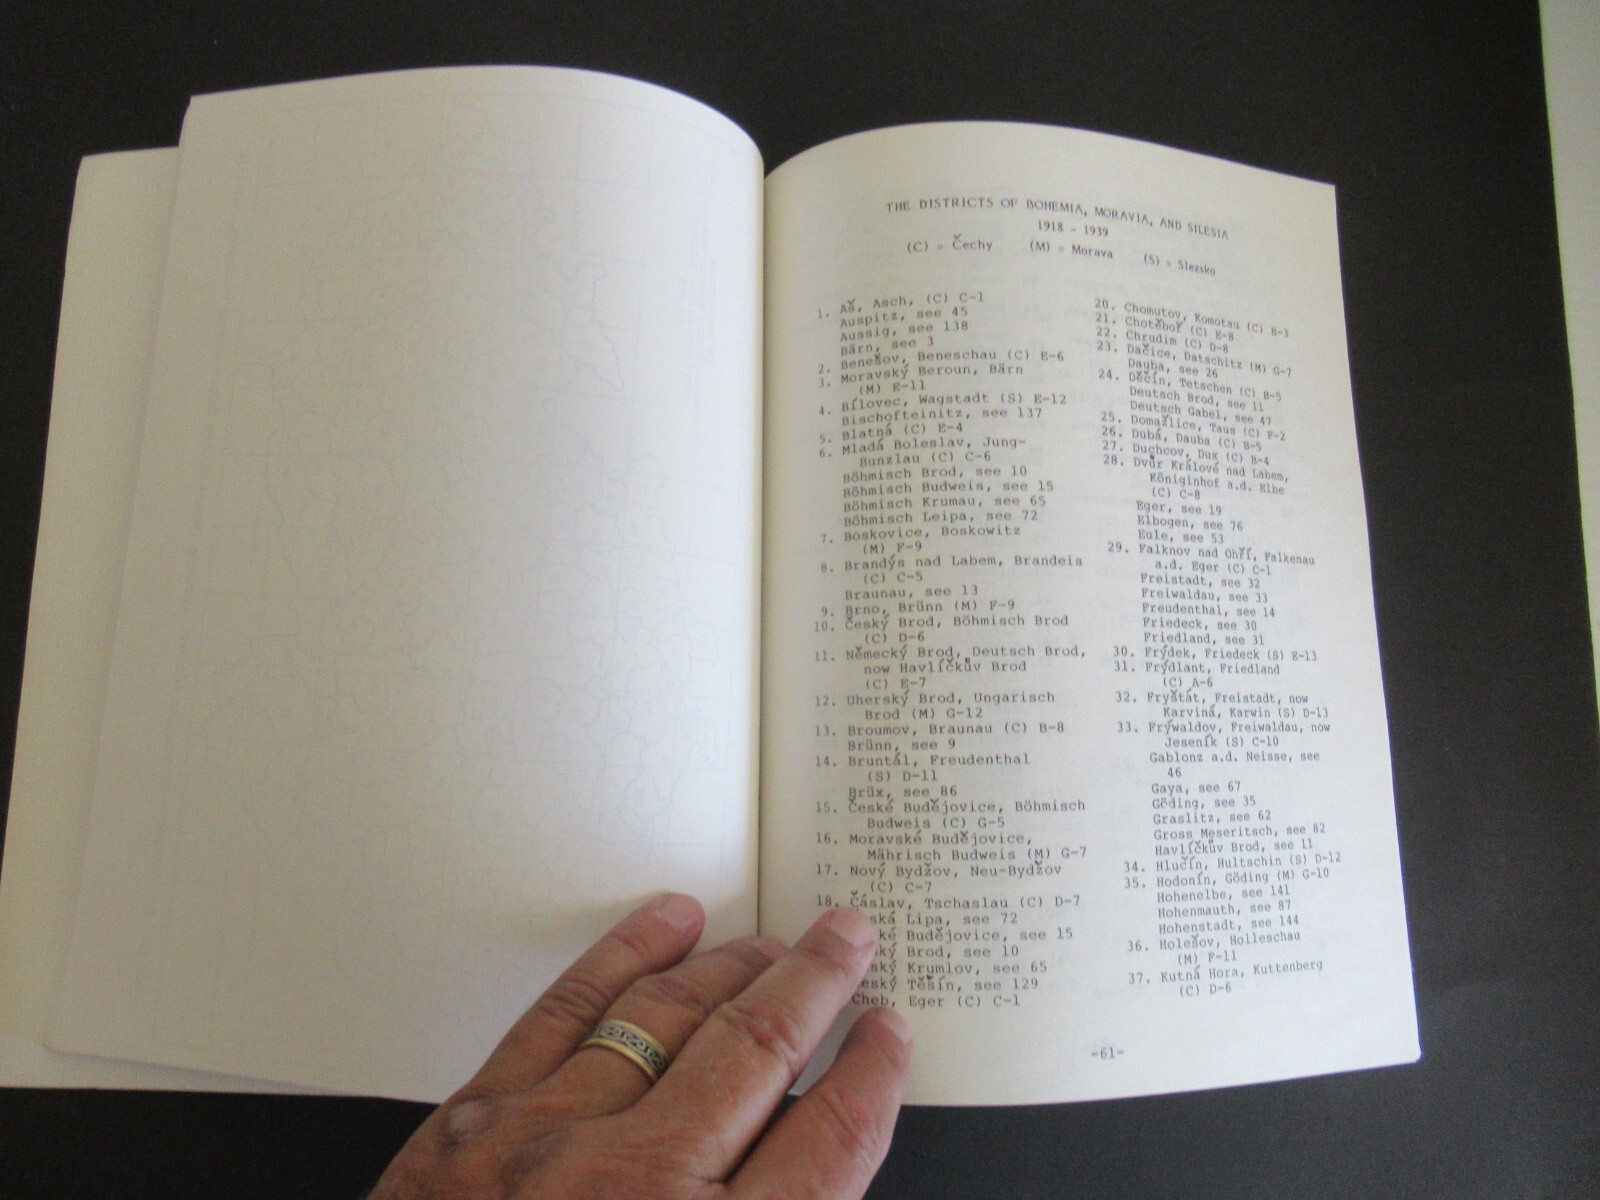 THE DISTRICTS OF BOHEMIA, MORAVIA, AND SILESIA
1918 - 1939
(C) = Čechy (M) = Morava (S) = Slezsko
1. Aš, Asch, (C) C-1
Auspitz, see 45
Aussig, see 138
Bärn, see 3
2. Benešov, Beneschau (C) E-6
3. Moravský Beroun, Bärn
(M) E-11
4. Bílovec, Wagstadt (S) E-12
Bischofteinitz, see 137
5. Blatná (C) E-4
6. Mladá Boleslav, Jung-
Bunzlau (C) C-6
Böhmisch Brod, see 10
Böhmisch Budweis, see 15
Böhmisch Krumau, see 65
Böhmisch Leipa, see 72
7. Boskovice, Boskowitz
(M) F-9
8. Brandýs nad Labem, Brandeis
(C) C-5
Braunau, see 13
9. Brno, Brünn (M) F-9
10. Český Brod, Böhmisch Brod
(C) D-6
11. Německý Brod, Deutsch Brod,
now Havlíčkův Brod
(C) E-7
12. Uherský Brod, Ungarisch
Brod (M) G-12
13. Broumov, Braunau (C) B-8
Brünn, see 9
14. Bruntál, Freudenthal
(S) D-11
Brüx, see 86
15. České Budějovice, Böhmisch
Budweis (C) G-5
16. Moravské Budějovice,
Mährisch Budweis (M) G-7
17. Nový Bydžov, Neu-Bydžov
(C) C-7
18. Čáslav, Tschaslau (C) D-7
ská Lipa, see 72
ké Budějovice, see 15
ký Brod, see 10
ský Krumlov, see 65
eský Těšín, see 129
Cheb, Eger (C) C-1
20. Chomutov, Komotau (C) B-3
21. Chotěboř (C) E-8
22. Chrudim (C) D-8
23. Dačice, Datschitz (M) G-7
Dauba, see 26
24. Děčín, Tetschen (C) B-5
Deutsch Brod, see 11
Deutsch Gabel, see 47
25. Domažlice, Taus (C) F-2
26. Dubá, Dauba (C) B-5
27. Duchcov, Dux (C) B-4
28. Dvůr Králové nad Labem,
Königinhof a.d. Elbe
(C) C-8
Eger, see 19
Elbogen, see 76
Eule, see 53
29. Falknov nad Ohří, Falkenau
a.d. Eger (C) C-1
Freistadt, see 32
Freiwaldau, see 33
Freudenthal, see 14
Friedeck, see 30
Friedland, see 31
30. Frýdek, Friedeck (S) E-13
31. Frýdlant, Friedland
(C) A-6
32. Fryštát, Freistadt, now
Karviná, Karwin (S) D-13
33. Frývaldov, Freiwaldau, now
Jeseník (S) C-10
Gablonz a.d. Neisse, see
46
Gaya, see 67
Göding, see 35
Graslitz, see 62
Gross Meseritsch, see 82
Havlíčkův Brod, see 11
34. Hlučín, Hultschin (S) D-12
35. Hodonín, Göding (M) G-10
Hohenelbe, see 141
Hohenmauth, see 87
Hohenstadt, see 144
36. Holešov, Holleschau
(M) F-11
37. Kutná Hora, Kuttenberg
(C) D-6
-61-